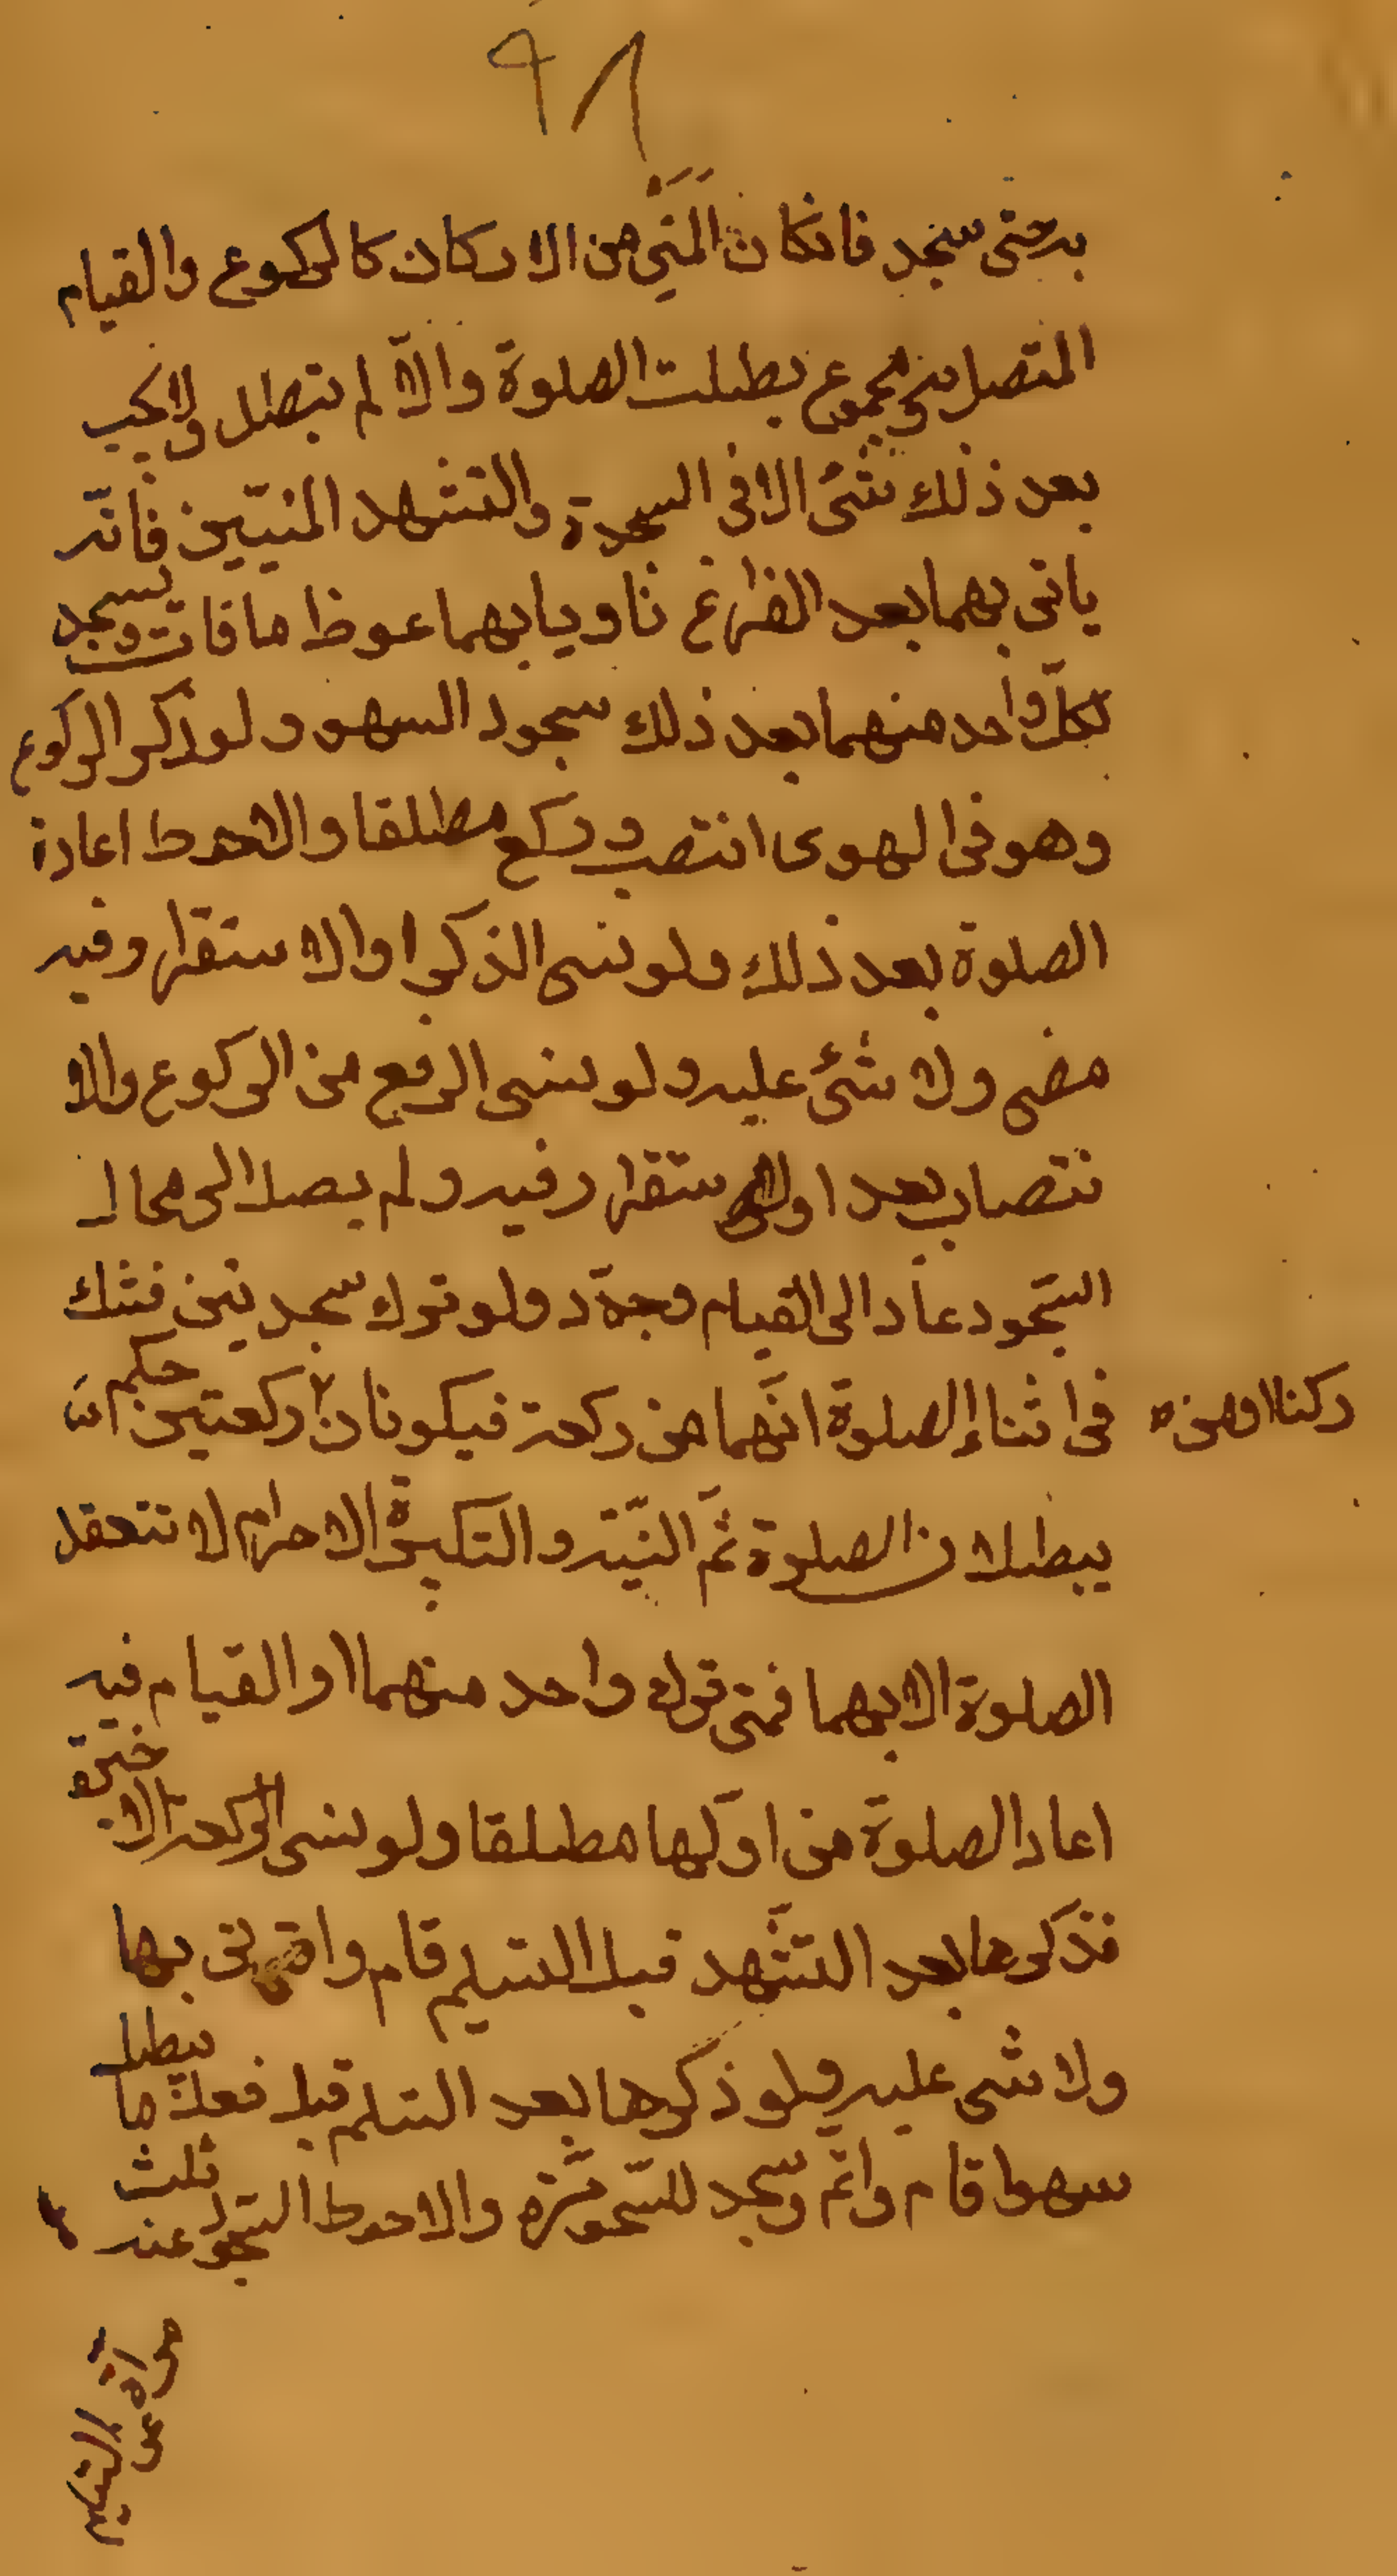 ٩٨
به حتى سجد فانكان المنسى من الاركان كالركوع والقيام
المتصل به مجموع بطلت الصلوة والا لم تبطل ولا يجب
بعد ذلك شئ الا فى السجدة والتشهد المنسيين فانه
ياتى بهما بعد الفراغ ناويا بهما عوظ ما فات ويسجد
لكل واحد منهما بعد ذلك سجود السهو ولو ذكر الركوع
وهو فى الهوى انتصب وركع مطلقا والاحوط اعادة
الصلوة بعد ذلك ولو نسى الذكر او الاستقرار فيه
مضى ولا شئ عليه ولو نسى الرفع من الركوع والا
نتصاب بعد او الاستقرار فيه ولم يصل الى محال
السجود عاد الى القيام وجدد ولو ترك سجدتين فشك
فى اثناء الصلوة انهما من ركعة فيكونان ركعتين حكم
ركنا او من
يبطلان الصلوة ثم النية والتكبيرة الاحرام لا تنعقد
الصلوة الا بهما فمتى ترك واحد منهما او القيام فيه
اعاد الصلوة من اولها مطلقا ولو نسى الركعة الاخيرة
فذكرها بعد التشهد قبل التسليم قام واتى بها
ولا شى عليه ولو ذكرها بعد التسليم قبل فعل ما يبطل
سهوا قام واتم وسجد للسهو مرة والاحوط السجود عنه ثلث
مراة
عن التسليم